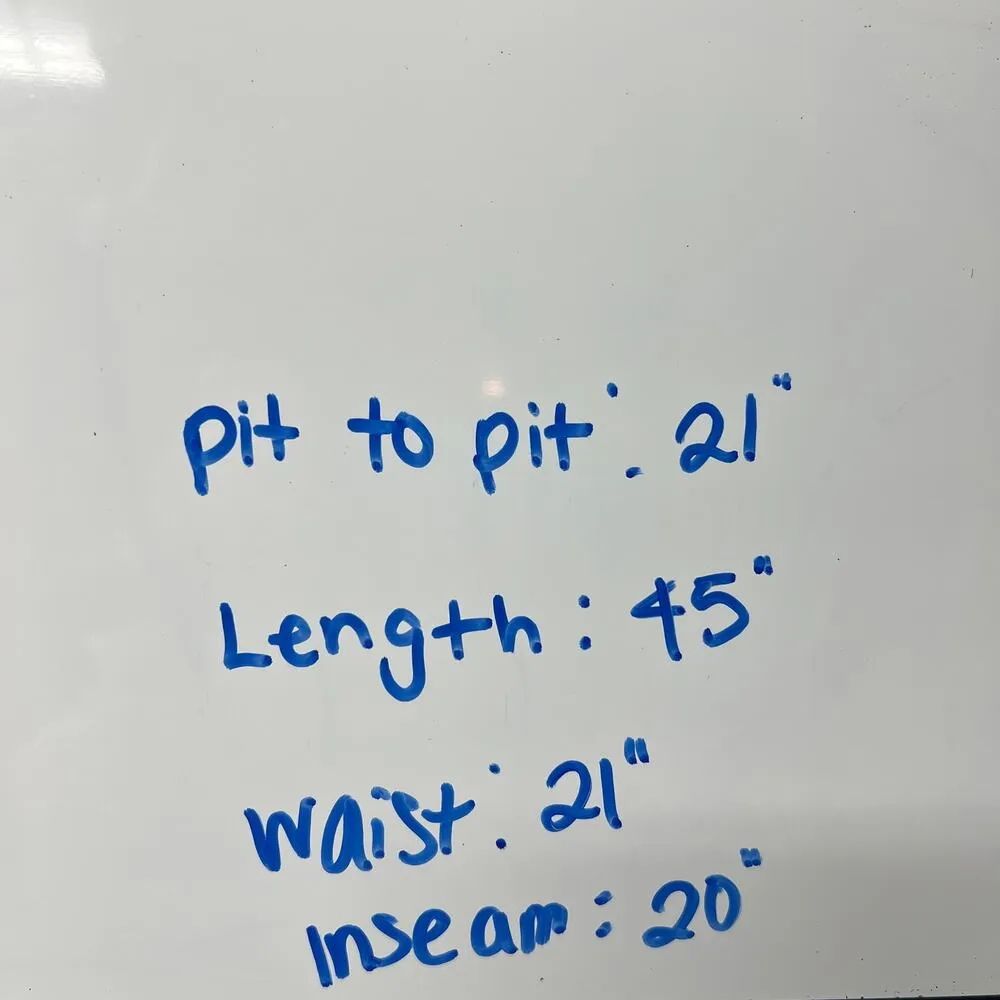 pit to pit: 21"
Length: 45"
waist: 21"
Inseam: 20"